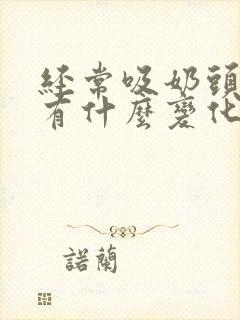 經常吸奶頭
有什麼變化
諾蘭